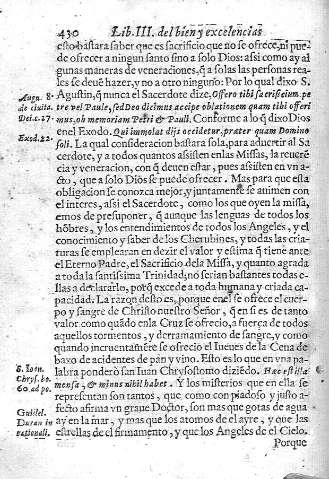 430 Lib. III. del bien y excelencias
esto bastara saber que es sacrificio que no se ofrece, ni pue
de ofrecer a ningun santo sino a solo Dios: assi como ay al
gunas maneras de veneraciones, q̃ a solas las personas rea
les se deuē hazer, y no a otro ninguno: Por lo qual dixo S.
Agustin, q̃ nunca el Sacerdote dize. Offero tibi sacrificium, pe
tre vel Paule, sed Deo dicimus accipe oblationem quam tibi offeri
mus, ob memoriam Petri & Pauli. Conforme a lo q̃ dixo Dios
en el Exodo. Qui immolat dijs occidetur, præter quam Domino
soli. La qual consideracion bastara sola, para aduertir al Sa
cerdote, y a todos quantos assisten en las Missa, la reuerē
cia y veneracion, con q̃ deuen estar, pues assisten en vn a-
cto, que a solo Dios se puede ofrecer. Mas para que esta
obligacion se conozca mejor, y juntamente se animen con
el interes, assi el Sacerdote, como los que oyen la missa,
emos de presuponer, q̃ aunque las lenguas de todos los
hōbres, y los entendimientos de todos los Angeles, y el
conocimiento y saber de los Cherubines, y todas las cria-
turas se emplearan en dezir el valor y estima q̃ tiene ante
el Eterno Padre, el Sacrificio dela Missa, y quanto agrada
a toda la santissima Trinidad, no serian bastantes todas e-
llas a declararlo, porq̃ excede a toda humana y criada ca-
pacidad. La razon desto es, porque en el se ofrece el cuer-
po y sangre de Christo nuestro Señor, q̃ en si es de tanto
valor como quādo en la Cruz se ofrecio, a fuerça de todos
aquellos tormentos, y derramamiento de sangre, y como
quando incruentamēte se ofrecio el Iueues de la Cena de
baxo de acidentes de pan y vino. Esto es lo que en vna pa-
labra ponderò san Iuan Chrysostomo diziēdo. Hæc est illa
mensa, & minus nihil habet. Y los misterios que en ella se
representan son tantos, que como con piadoso y justo a-
fecto afirma vn graue Doctor, son mas que gotas de agua
ay en la mar, y mas que los atomos de el ayre, y que las
estrellas de el firmamento, y que los Angeles de el Cielo.
Porque
Augu. 8.
de ciuita.
Dei. c. 27.
Exod. 22.
S. Ioan.
Chrys. ho.
60. ad po.
Guillel.
Duran in
rationali.